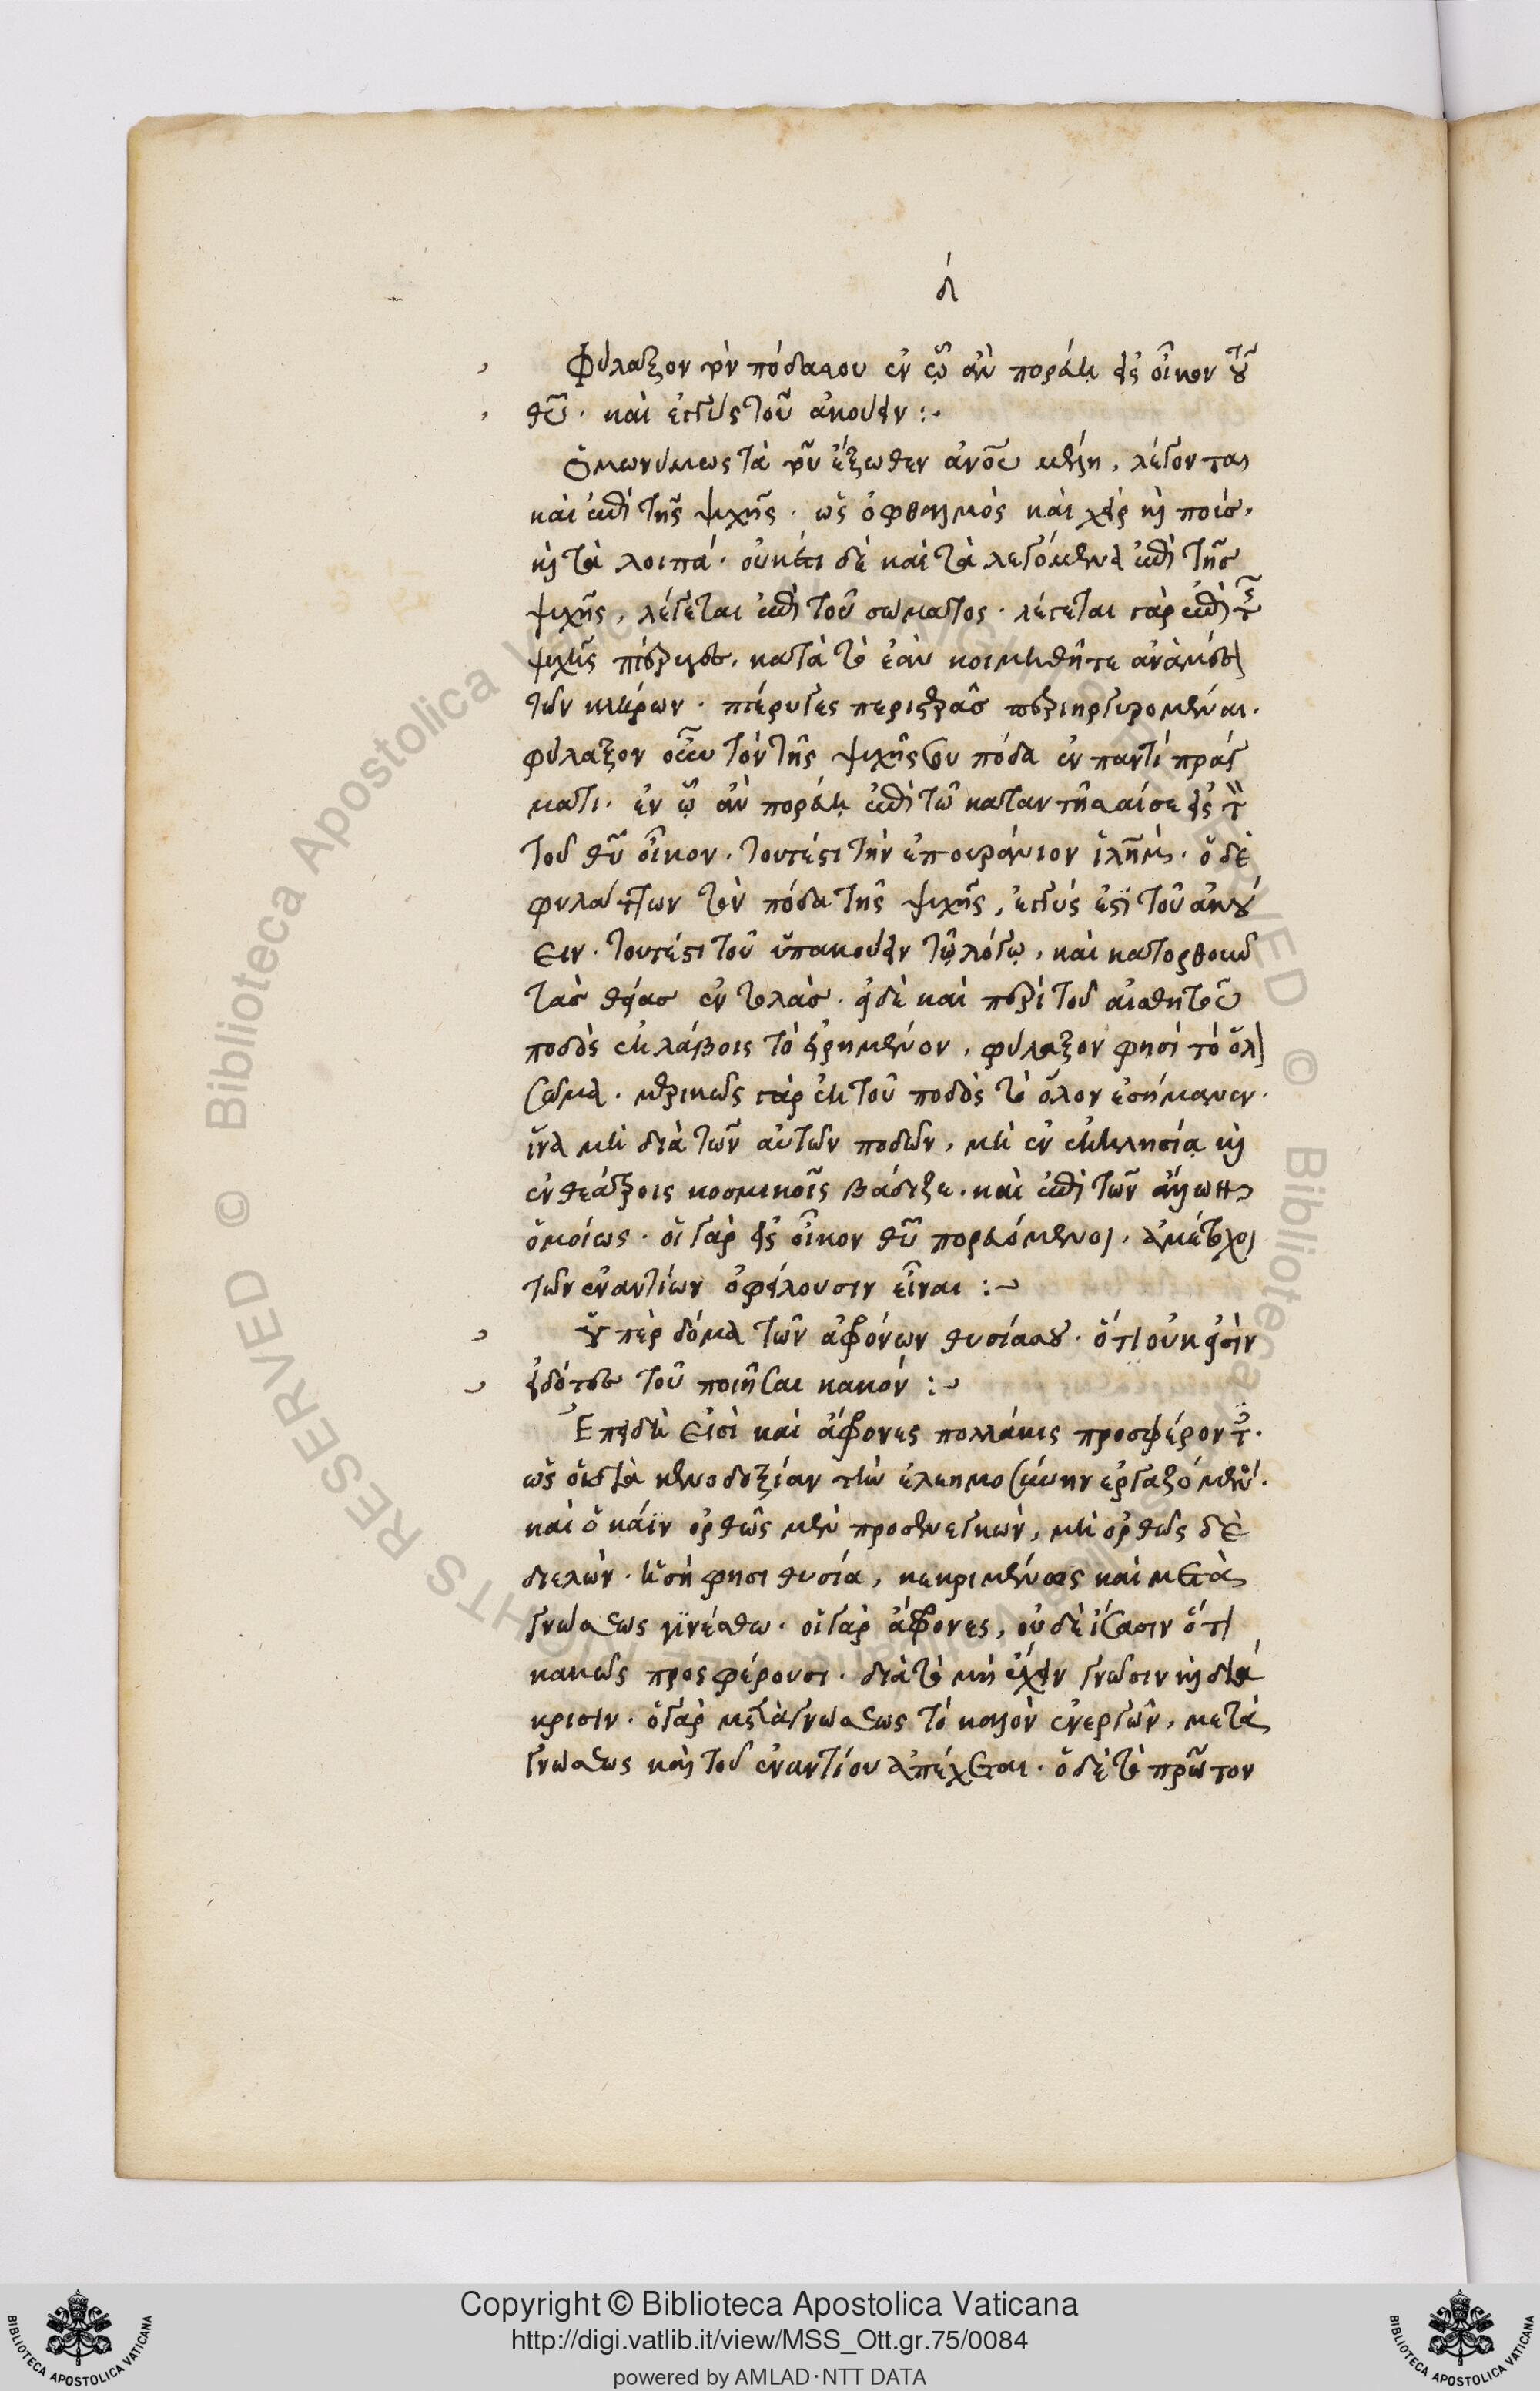 δ
Φύλαξον τὸν πόδα σου ἐν ᾧ ἂν πορεύῃ εἰς οἶκον τοῦ
θυ. καὶ ἐγγὺς τοῦ ἀκούειν :.
Ὁμωνύμως τὰ τοῦ ἔξωθεν ἀνου μέλη, λέγονται
καὶ ἐπὶ τῆς ψυχῆς. ὡς ὀφθαλμὸς καὶ χεὶρ κὶ ποῦσ.
κὶ τὰ λοιπά. οὐκέτι δὲ καὶ τὰ λεγόμενα ἐπὶ τῆσ
ψυχῆς, λέγεται ἐπὶ τοῦ σώματος. λέγεται γὰρ ἐπὶ τῆς
ψυχῆς πτέρυγες. κατὰ τὸ ἐὰν κοιμηθῆτε ἀνὰ μέσον
τῶν κλήρων. πτέρυγες περιστερᾶσ περιηργυρομέναι.
φύλαξον οὖν τὸν τῆς ψυχῆς σου πόδα ἐν παντὶ πράγ
ματι. ἐν ᾧ ἂν πορεύῃ ἐπὶ τῶ καταντῆσαί σε εἰς τὸν
τοῦ θυ οἶκον. τουτέστι τὴν ἐπουράνιον ἱλημ. ὁ δὲ
φυλάττων τὸν πόδα τῆς ψυχῆς, ἐγγύς ἐστὶ τοῦ ἀκού
ειν. τουτέστι τοῦ ὑπακούειν τῷ λόγῳ, καὶ κατορθοῦν
τὰσ θείασ ἐντολάσ. εἰ δὲ καὶ περὶ τοῦ αἰσθητοῦ
ποδὸς ἐκλάβοις τὸ εἰρημένον, φύλαξον φησὶ τὸ ὅλον
σῶμα. μερικῶς γὰρ ἐκ τοῦ ποδὸς τὸ ὅλον ἐσήμανεν.
ἵνα μὴ διὰ τῶν αὐτῶν ποδῶν, μὴ ἐν ἐκκλησίᾳ κὶ
ἐν θεάτροις κοσμικοῖς βάδιζε. καὶ ἐπὶ τῶν ἄλλων
ὁμοίως. οἱ γὰρ εἰς οἶκον θυ πορευόμενοι, ἀμέτοχοι
τῶν ἐναντίων ὀφείλουσιν εἶναι :
Ὑπὲρ δόμα τῶν ἀφρόνων θυσία σου. ὅτι οὐκ εἰσὶν
εἰδότες τοῦ ποιῆσαι κακόν :
Ἐπειδὴ εἰσὶ καὶ ἄφρονες πολλάκις προσφέροντες.
ὡς οἱ κατὰ κενοδοξίαν τὴν ἐλεημοσύνην ἐργαζόμενοι.
καὶ ὁ κάϊν ὀρθῶς μὲν προσενεγκών, μὴ ὀρθῶς δὲ
διελών. ἡ σή φησι θυσία, κεκριμένως καὶ μετὰ
γνώσεως γινέσθω. οἱ γὰρ ἄφρονες, οὐδὲ ἴσασιν ὅτι
κακῶς προσφέρουσι. διὰ τὸ μὴ ἔχειν γνῶσιν κὶ διά
κρισιν. ὁ γὰρ μετὰ γνώσεως τὸ καλὸν ἐνεργῶν, μετὰ
γνώσεως καὶ τοῦ ἐναντίου ἀπέχεται. ὁ δὲ τὸ πρῶτον
Copyright © Biblioteca Apostolica Vaticana
http://digi.vatlib.it/view/MSS_Ott.gr.75/0084
powered by AMLAD·NTT DATA